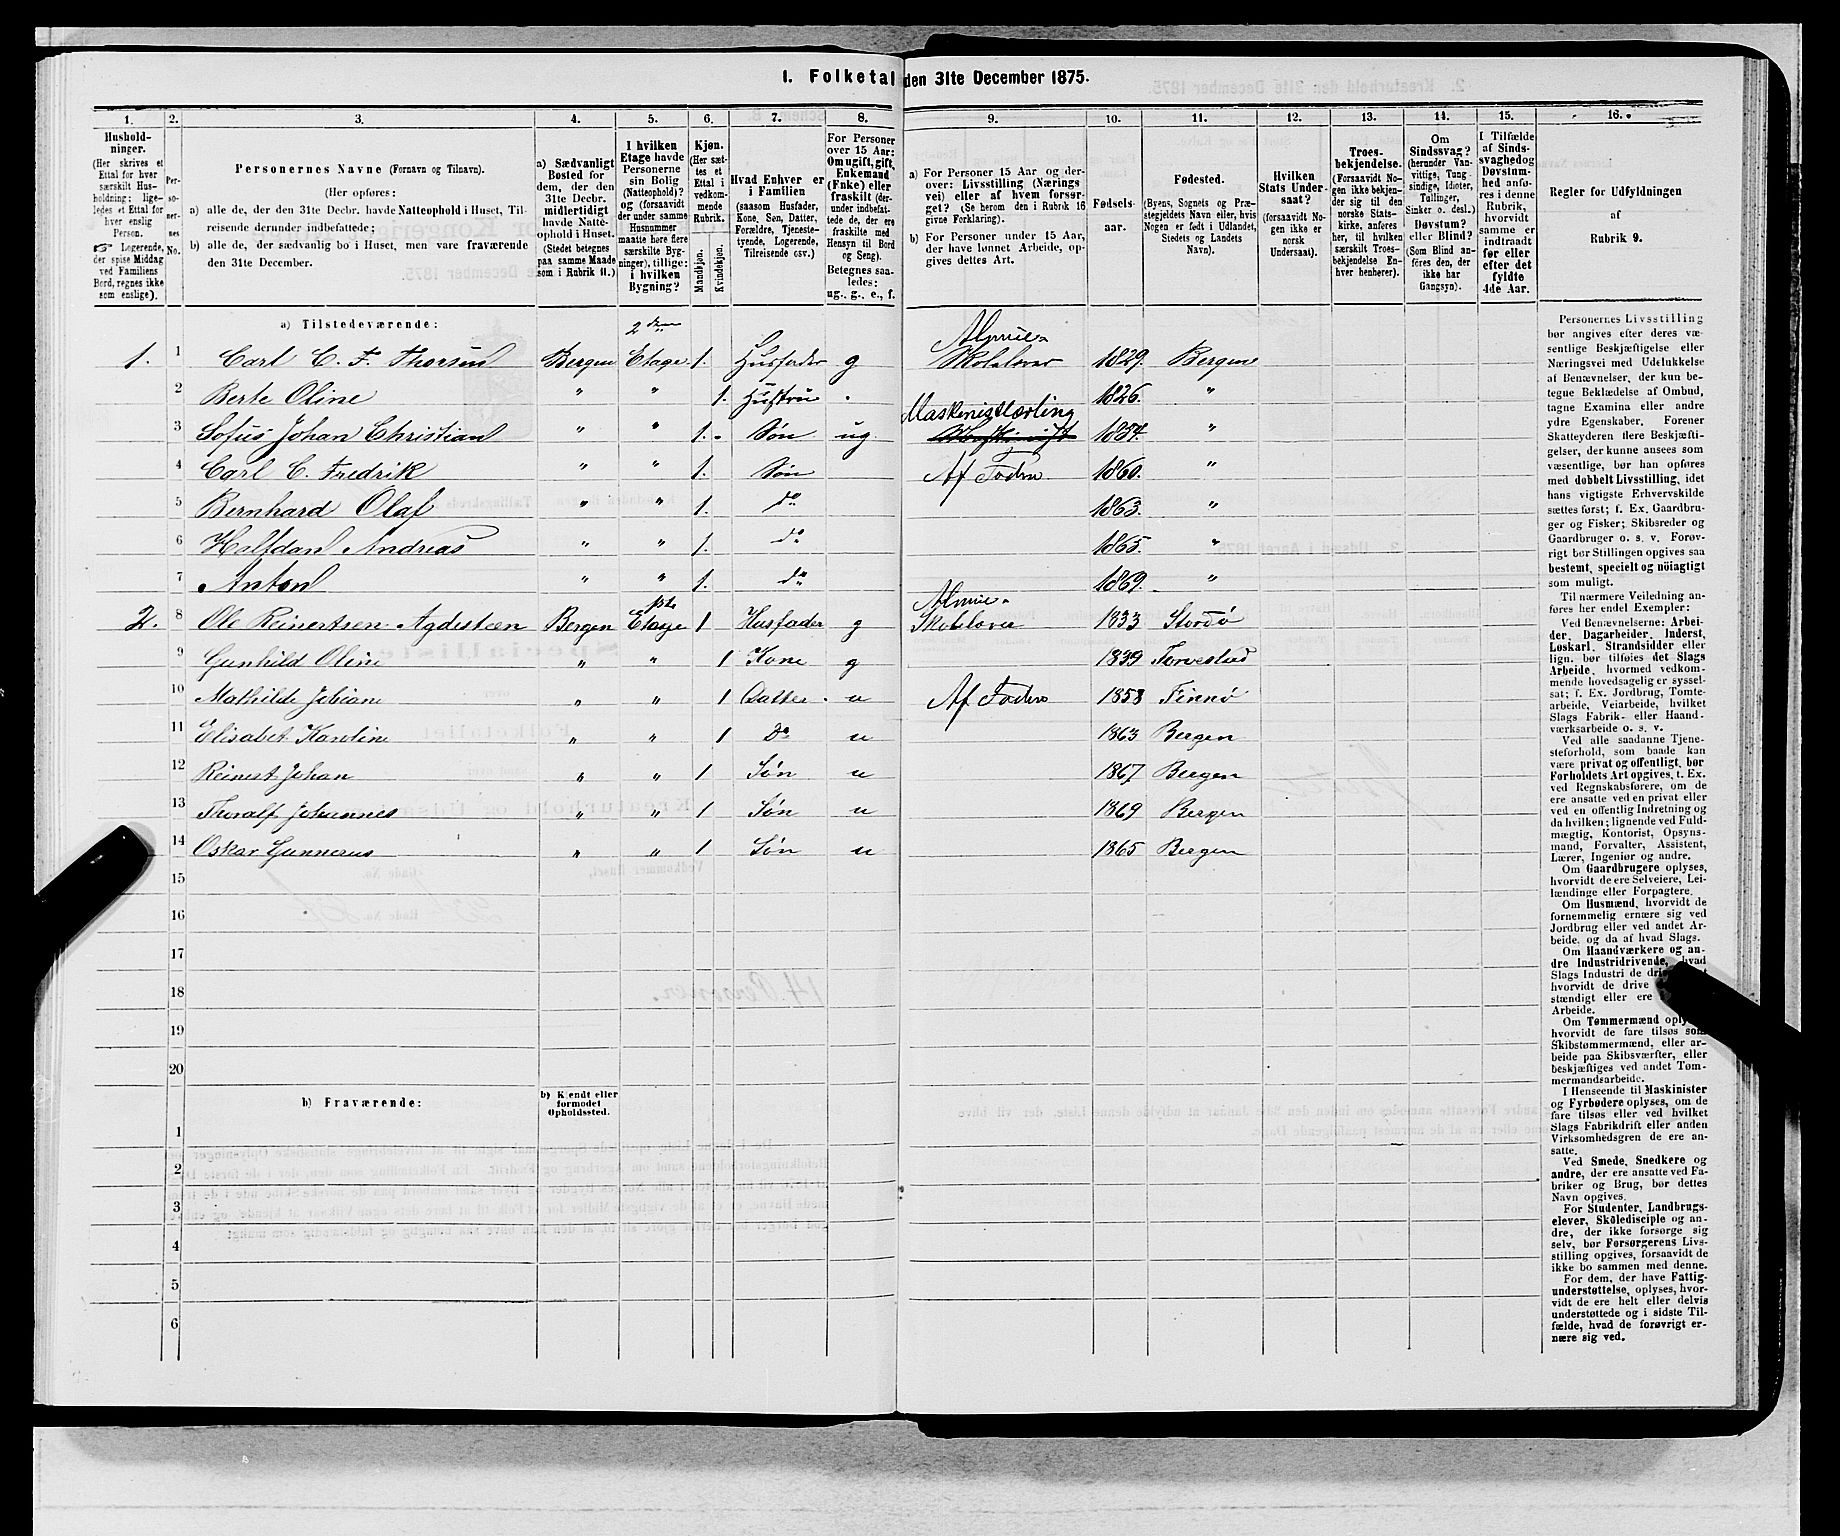 1. Folketal den 31te December 1875.
1.
Hushold-
ninger.
(Her skrives et
Ettal for hver
særskilt Hus-
holdning; lige-
ledes et Ettal for
hver enslig
Person.
Logerende,
der spise Middag
ved Familiens
Bord, regnes ikke
som enslige).
2.
Per-
so-
ner-
nes
No.
3.
Personernes Navne (Fornavn og Tilnavn).
(Her opføres:
a) alle de, der den 31te Decbr. havde Natteophold i Huset, Til-
reisende derunder indbefattede;
b) alle de, der sædvanlig bo i Huset, men vare fraværende
den 31te December.
4.
a) Sædvanligt
Bosted for
dem, der den
31te Decbr.
midlertidigt
havde Natte-
ophold i Huset.
(Stedet betegnes
paa samme Maade
som i Rubrik 11.)
5.
I hvilken
Etage havde
Personerne
sin Bolig
(Natteophold)?
og (forsaavidt
der under samme
Husnummer
maatte høre flere
særskilte Byg-
ninger), tillige:
i hvilken
Bygning?
6.
Kjøn.
(Her sæt-
tes et
Ettal i
vedkom-
mende
Rubrik.
Mandkjøn.
Kvindekjøn.
7.
Hvad Enhver er
i Familien
(saasom Husfader,
Kone, Søn, Datter,
Forældre, Tjeneste-
tyende, Logerende,
Tilreisende osv.)
8.
For Personer
over 15 Aar:
Om ugift, gift,
Enkemand
(Enke) eller
fraskilt (der-
under indbefat-
tede de, der ere
fraskilte med
Hensyn til Bord
og Seng).
Betegnes saa-
ledes:
ug., g., e., f.
9.
a) For Personer 15 Aar og der-
over: Livsstilling (Nærings-
vei) eller af hvem forsør-
get? (Se herom den i Rubrik 16
givne Forklaring).
b) For Personer under 15 Aar,
der have lønnet Arbeide, op-
gives dettes Art.
10.
Fødsels-
aar.
11.
Fødested.
(Byens, Sognets og Præ-
stegjeldets Navn eller, hvis
Nogen er født i Udlandet,
Stedets og Landets
Navn).
12.
Hvilken
Stats Under-
saat?
(forsaavidt No-
gen ikke er
norsk
Undersaat).
13.
Troes-
bekjendelse.
(Forsaavidt No-
gen ikke bekjen-
der sig til den
norske Stats-
kirke, anføres
her, til hvilken
særskilt Troes-
bekjendelse En-
hver henhører).
14.
Om
Sindssvag?
(herunder Van-
vittige, Tung-
sindige, Idioter,
Tullinger,
Sinker o. desl.)
Døvstum?
eller Blind?
(Som Blind an-
føres den, der
ikke har
Gangsyn).
15.
I Tilfælde
af Sinds-
svaghed og
Døvstum-
hed anfø-
res i denne
Rubrik,
hvorvidt
samme er
indtraadt
før eller
efter det
fyldte
4de Aar.
16.
Regler for Udfyldningen
af
Rubrik 9.
a) Tilstedeværende:
2den
Almue-
1. 1 Carl C. F. Thorsen Bergen Etage 1. Husfader g Skolelærer 1829. Bergen
2 Berte Oline " " 1. Hustru 1826. "
Maskinistlærling
3 Sofus Johan Christian " " 1. Søn ug. 1854. "
4 Carl C. Fredrik " " 1. Søn Af Fadren 1860. "
5 Bernhard Olaf " " 1. do 1863. "
6 Halfdan Andreas " " 1. do 1865. "
7 Anton " " 1. do 1869. "
1ste
Almue-
2. 8 Ole Reinertsen Agdesteen Bergen Etage 1 Husfader g Skolelærer 1833 Stordø
9 Gunhild Oline " " 1 Kone g 1839 Torvestad
10 Mathilde Jobiane " " 1 Datter u Af Fadren 1858 Finnø
11 Elisabet Karoline " " 1 Do u 1863 Bergen
12 Reinert Johan " " 1 Søn u 1867 Bergen
13 Thoralf Johannes " " 1 Søn u 1869 Bergen
14 Oskar Gunnerus " " 1 Søn u 1865 Bergen
15
16
17
18
19
20
b) Fraværende:
b) Kjendt eller
formodet
Opholdssted.
1
2
3
4
5
6
Personernes Livsstilling
bør angives efter deres væ-
sentlige Beskjæftigelse eller
Næringsvei med Udelukkelse
af Benævnelser, der kun be-
tegne Beklædelse af Ombud,
tagne Examina eller andre
ydre Egenskaber. Forener
Skatteyderen flere Beskjæfti-
gelser, der kunne ansees som
væsentlige, bør han opføres
med dobbelt Livsstilling, idet
hans vigtigste Erhvervskilde
sættes først; f. Ex. Gaardbru-
ger og Fisker; Skibsreder og
Gaardbruger o. s. v. Forøv-
rigt bør Stillingen opgives saa
bestemt, specielt og nöiagtigt
som muligt.
Til nærmere Veiledning an-
føres her endel Exempler:
Ved Benævnelserne: Arbei-
der, Dagarbeider, Inderst,
Løskarl, Strandsidder eller
lign. bør tilføies det Slags
Arbeide, hvormed vedkom-
mende hovedsagelig er syssel-
sat; f. Ex. Jordbrug, Tomte-
arbeide, Veiarbeide, hvilket
Slags Fabrik- eller Haand-
værksarbeide o. s. v.
Ved alle saadanne Tjene-
steforhold, som baade kan
være privat og offentligt, bør
Forholdets Art opgives, f. Ex.
ved Regnskabsførere, om de
ere ansatte ved en privat eller
ved en offentlig Indretning og
da hvilken; lignende ved Fuld-
mægtig, Kontorist, Opsyns-
mand, Forvalter, Assistent,
Lærer, Ingeniør og andre.
Om Gaardbrugere oplyses,
hvorvidt de ere Selveiere, Lei-
lændinge eller Forpagtere.
Om Husmænd, hvorvidt de
fornemmelig ernære sig ved
Jordbrug eller ved andet Ar-
beide, og da af hvad Slags.
Om Haandværkere og an-
dre Industridrivende, hvad
Slags Industri de
hvorvidt de drive
stændigt eller ere
Arbeide.
Om Tømmermænd
hvorvidt de fare tilsøs som
Skibstømmermænd, eller ar-
beide paa Skibsværfter, eller
beskjæftiges ved andet Tøm-
mermandsarbeide.
I Henseende til Maskinister
og Fyrbødere oplyses, om de
fare tilsøs eller ved hvilket
Slags Fabrikdrift eller anden
Virksomhedsgren de ere an-
satte.
Ved Smede, Snedkere og
andre, der ere ansatte ved Fa-
briker og Brug, bør dettes
Navn opgives.
For Studenter, Landbrugs-
elever, Skoledisciple og an-
dre, der ikke forsørge sig
selv, bør Forsørgerens Livs-
stilling opgives, forsaavidt de
ikke bo sammen med denne.
For dem, der have Fattig-
understøttelse, oplyses, hvor-
vidt de ere helt eller delvis
understøttede og i sidste Til-
fælde, hvad de forøvrigt er-
nære sig ved.